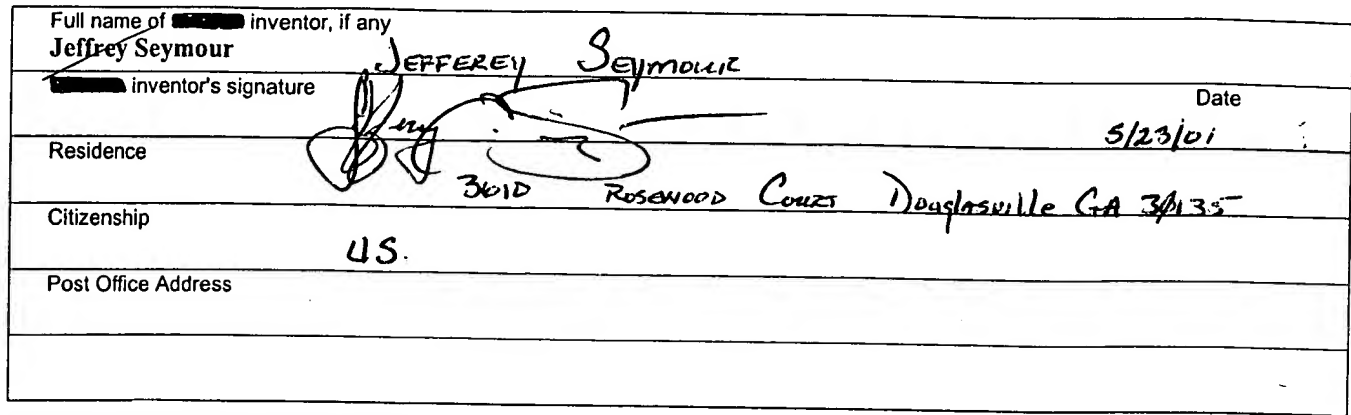 Full name of inventor, if any
Jeffrey Seymour
JEFFEREY SEYMOUR
inventor's signature
Date
5/23/01
Residence
3610 ROSEWOOD COURT Douglasville GA 30135
Citizenship
US.
Post Office Address